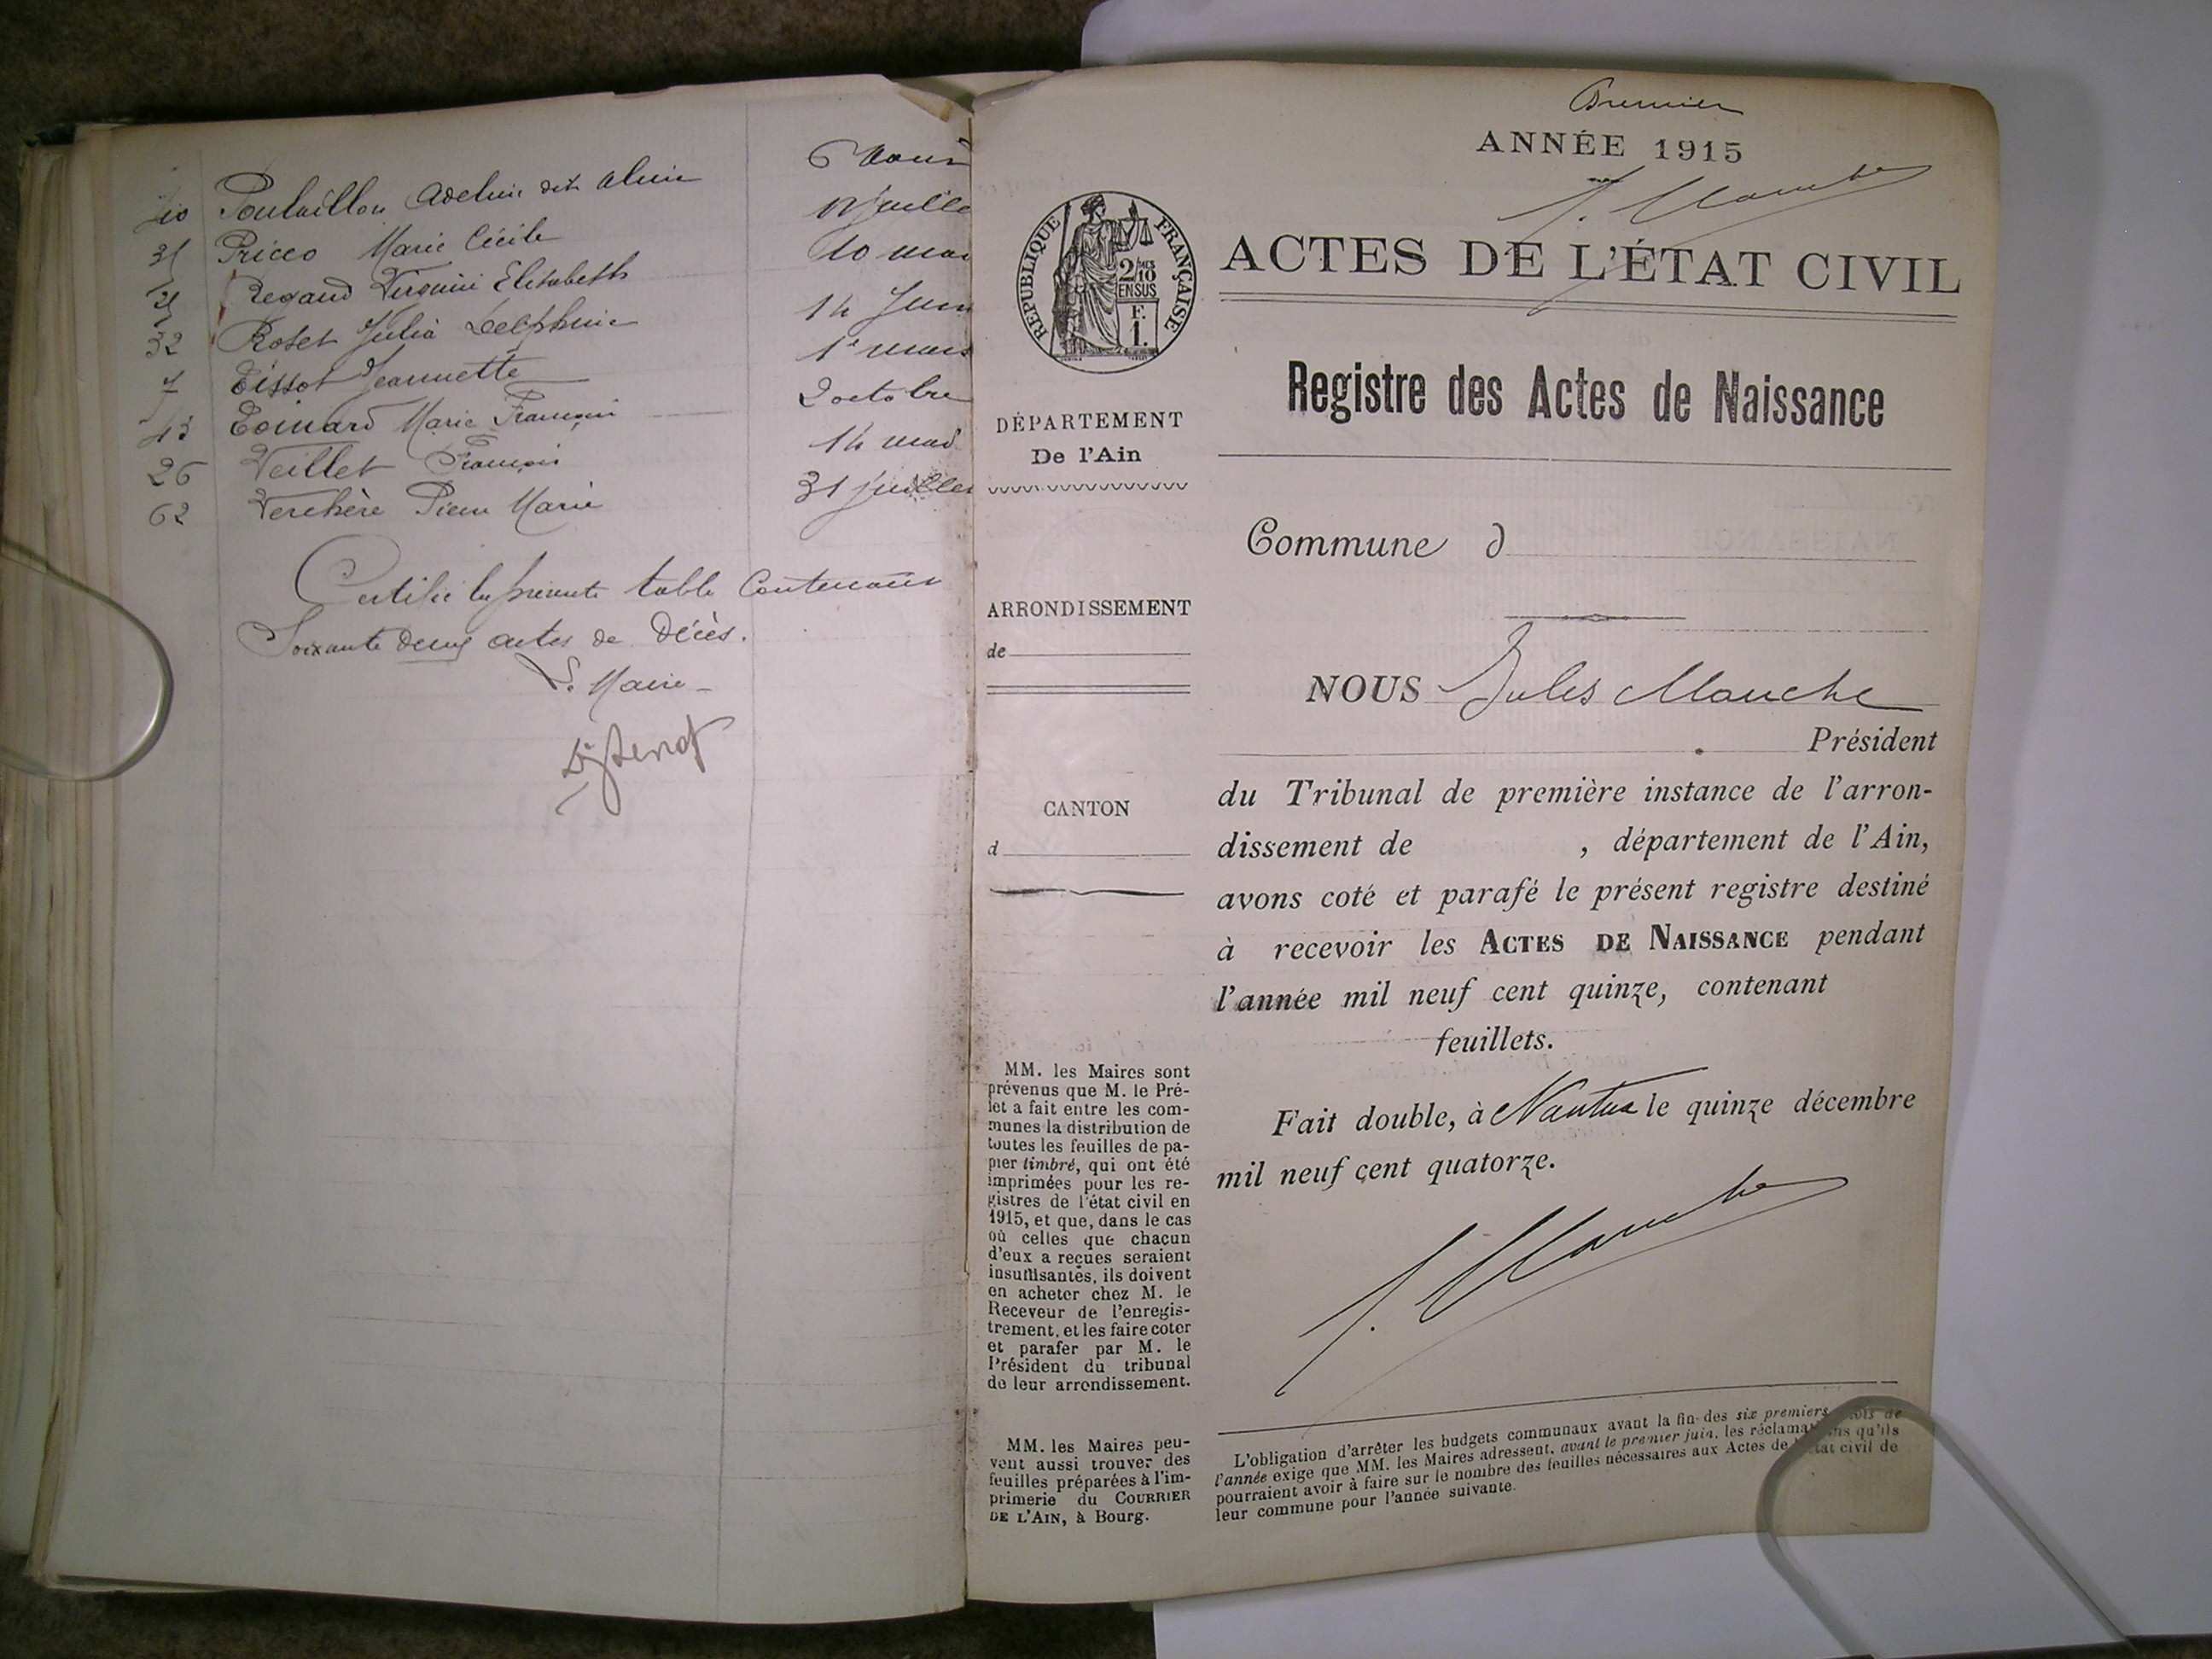 Poulaillon Adeline dit Aline 6 Aout
31 Pricco Marie Cécile 12 juille
21 Regaud Virginie Elisabeth 10 mai
32 Roset Julia Delphine 14 Juin
7 Tissot Jeannette 1er mars
43 Toinard Marie François 2 octobre
26 Veillet François 14 mai
62 Verchère Pierre Marie 31 juillet
Certifié la présente table Contenant
Soixante deux actes de Décès.
Le Maire
Premier
ANNÉE 1915
J. Mauche
RÉPUBLIQUE FRANÇAISE
2/10MES
EN SUS
F.
1.
ACTES DE L'ÉTAT CIVIL
Registre des Actes de Naissance
DÉPARTEMENT
De l'Ain
Commune d
ARRONDISSEMENT
de
NOUS Jules Mauche
Président
CANTON
d
du Tribunal de première instance de l'arron-
dissement de , département de l'Ain,
avons coté et parafé le présent registre destiné
à recevoir les ACTES DE NAISSANCE pendant
l'année mil neuf cent quinze, contenant
feuillets.
Fait double, à Nantua le quinze décembre
mil neuf cent quatorze.
J. Mauche
MM. les Maires sont
prévenus que M. le Pré-
fet a fait entre les com-
munes la distribution de
toutes les feuilles de pa-
pier timbré, qui ont été
imprimées pour les re-
gistres de l'état civil en
1915, et que, dans le cas
où celles que chacun
d'eux a reçues seraient
insuffisantes, ils doivent
en acheter chez M. le
Receveur de l'enregis-
trement, et les faire coter
et parafer par M. le
Président du tribunal
de leur arrondissement.
MM. les Maires peu-
vent aussi trouver des
feuilles préparées à l'im-
primerie du COURRIER
DE L'AIN, à Bourg.
L'obligation d'arrêter les budgets communaux avant la fin des six premiers mois de
l'année exige que MM. les Maires adressent, avant le premier juin, les réclamations qu'ils
pourraient avoir à faire sur le nombre des feuilles nécessaires aux Actes de l'état civil de
leur commune pour l'année suivante.